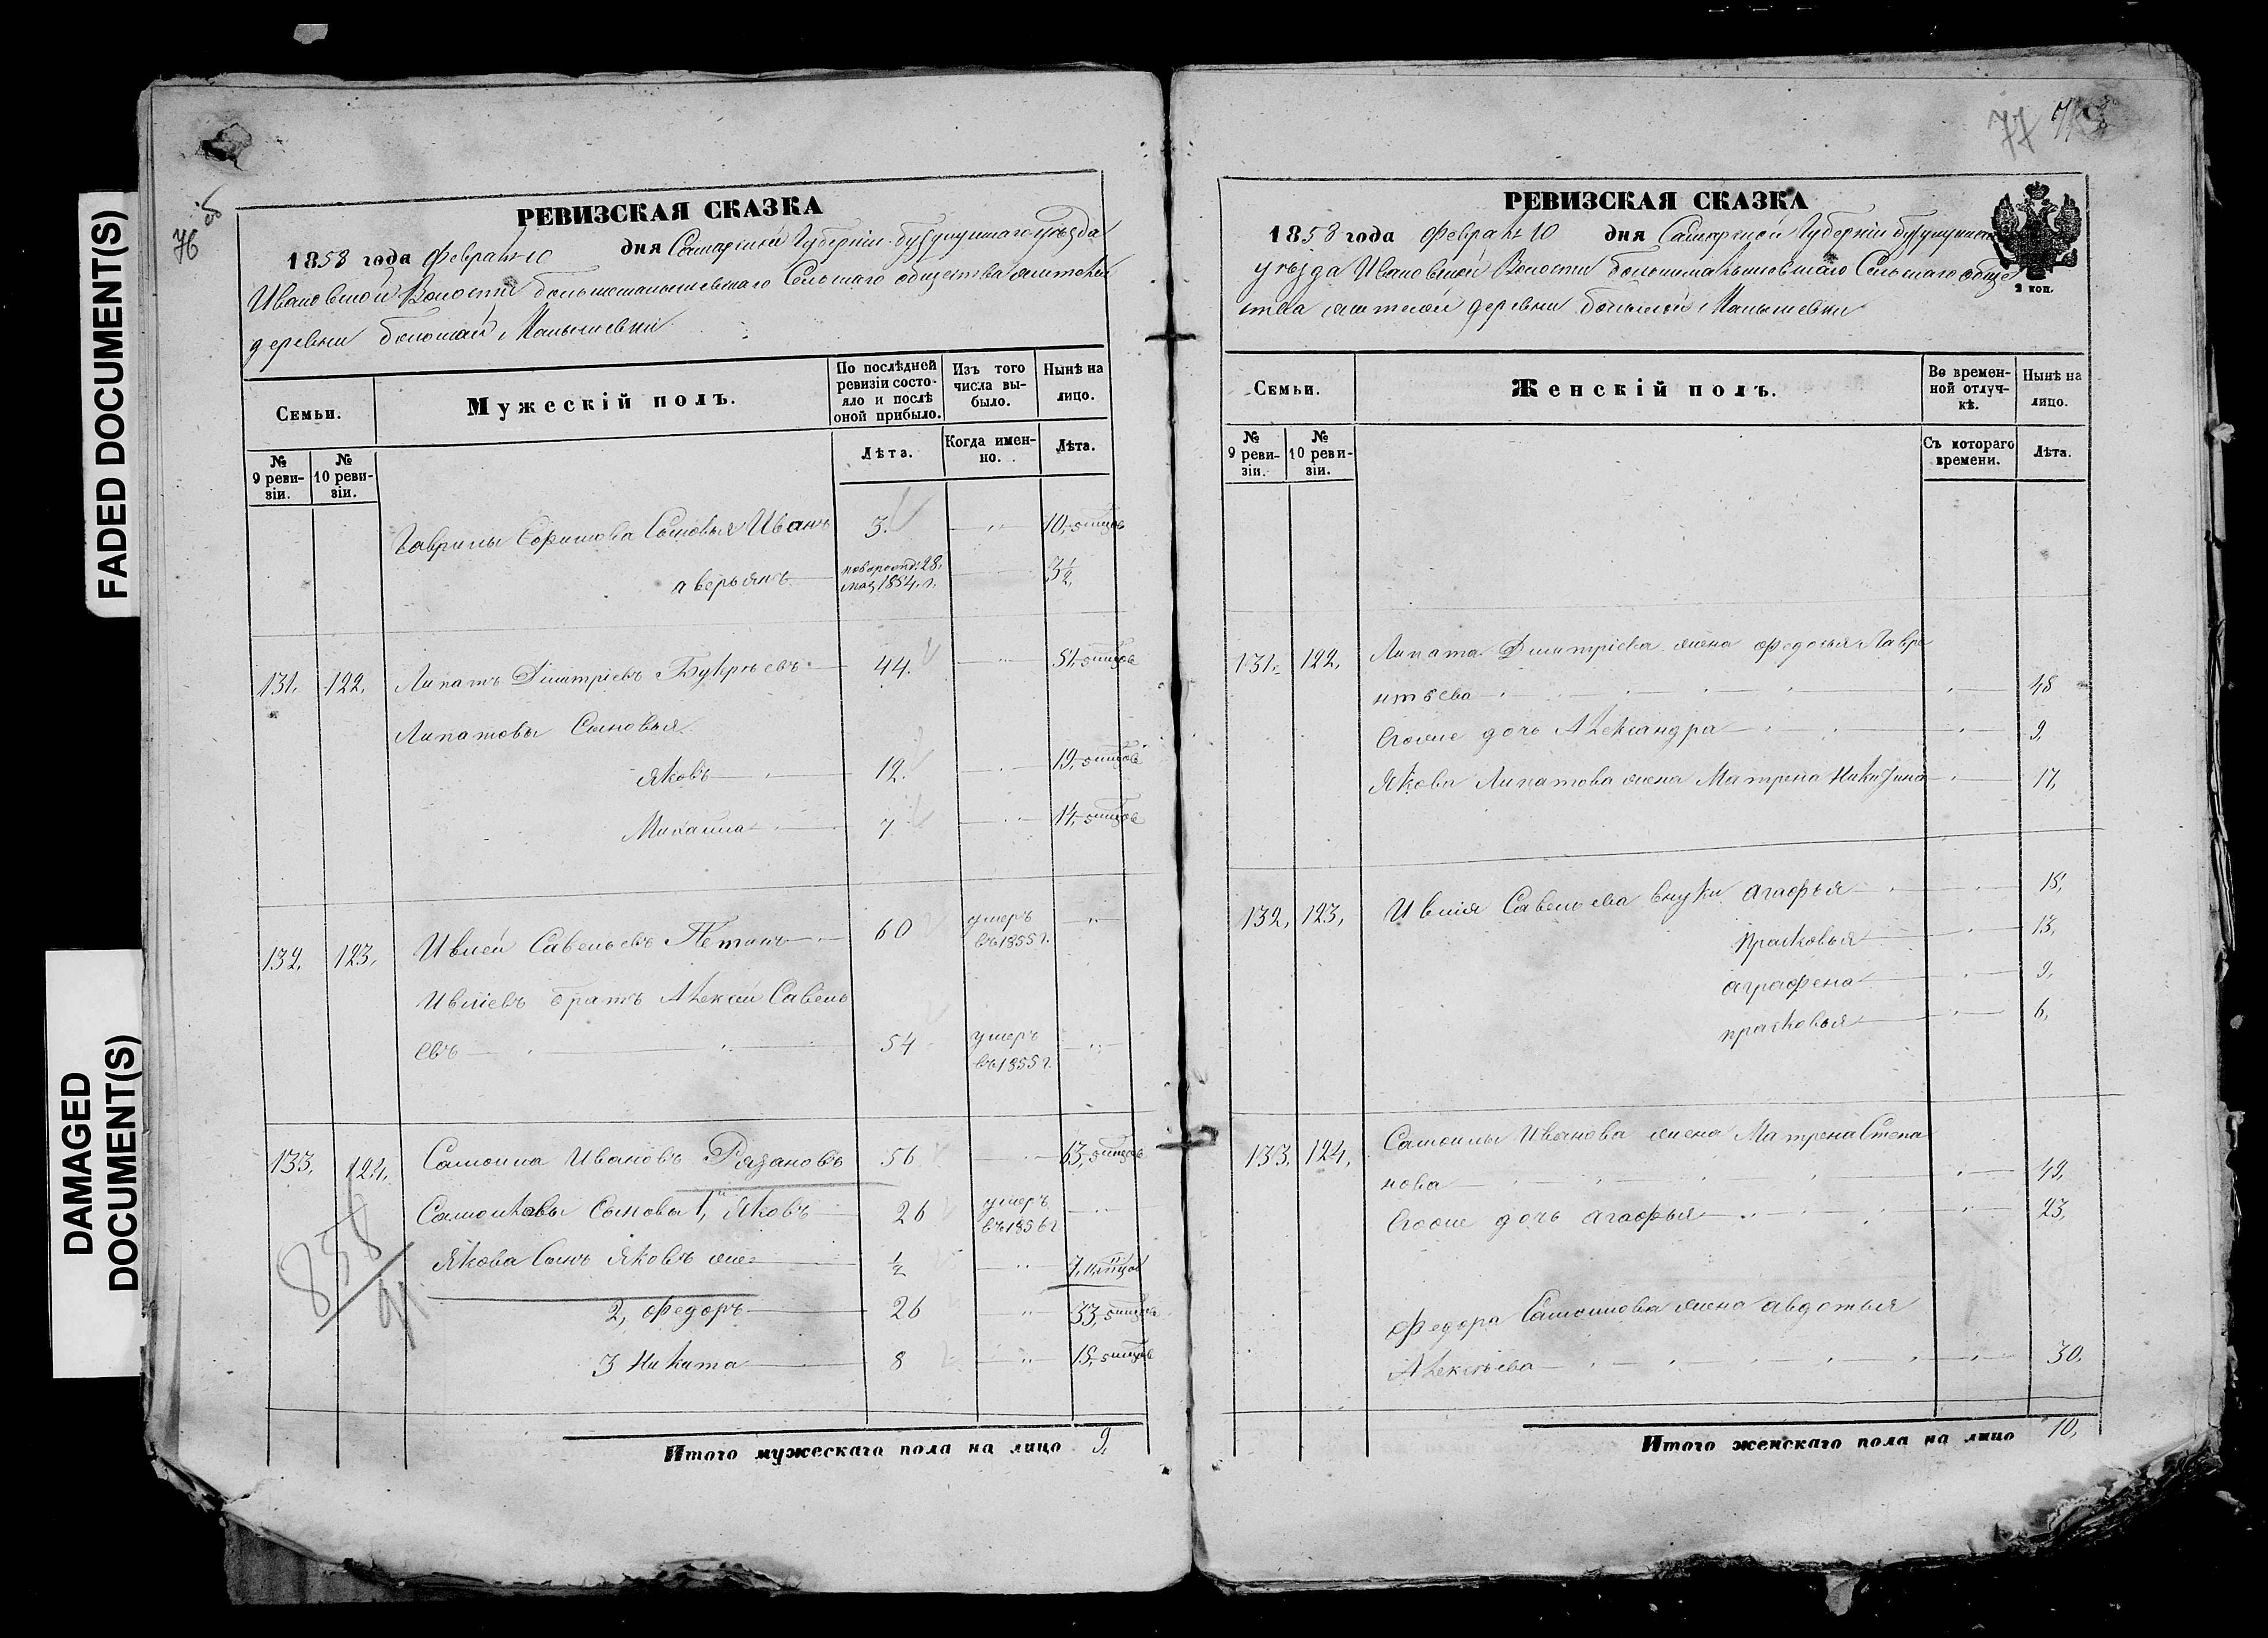 FADED DOCUMENT(S)
DAMAGED
DOCUMENT(S)
76 об
РЕВИЗСКАЯ СКАЗКА
1858 года Февраля 10 дня Самарской Губерніи Бузулукскаго уѣзда
Ивановской Волости большемалышевскаго Сельскаго общества
деревни большой Малышевки
Семьи.
Мужескій полъ.
По послѣдней ревизіи состояло и послѣ оной прибыло.
Изъ того числа вы-было.
Нынѣ на лицо.
№ 9 реви-зіи.
№ 10 реви-зіи.
Лѣта.
Когда имен-но.
Лѣта.
Гаврилы Сыновья Иванъ 3. 10,
аверьянъ новорожд: 28. мая 1854. г. 3½
131. 122. Липатъ Дмитріевъ 44. 51,
Липатовы Сыновья
Яковъ 12. 19,
Михаила 7 14,
132, 123, Ивлей Савельевъ 60 умеръ въ 1855 г.
Ивліевъ братъ Алексей Савель
евъ 54 умеръ въ 1855 г.
133, 124, Самойла Ивановъ Рязановъ 56 63,
Самойловы Сыновья 1, Яковъ 26 умеръ въ 1856 г
Якова Сынъ Яковъ же ½ 7,
2, Федоръ 26 33,
3 Никита 8 15,
858/91
Итого мужескаго пола на лицо 9,
77
РЕВИЗСКАЯ СКАЗКА
1858 года Февраля 10 дня Самарской Губерніи бузулукскаго
уѣзда Ивановской Волости большималышевскаго Сельскаго обще
ства деревни большой Малышевки
2 коп.
Семьи.
Женскій полъ.
Во времен-ной отлуч-кѣ.
Нынѣ на лицо.
№ 9 реви-зіи.
№ 10 реви-зіи.
Съ котораго времени.
Лѣта.
131. 122, Липата Дмитріева жена Федосья Лавре
нтьева 48
Егоже дочь Александра 9,
Якова Липатова жена Матрена Никитина 17,
132, 123, Ивлія Савельева внуки Агафья 15,
Прасковья 13,
аграфена 9,
прасковья 6,
133. 124, Самойлы Иванова жена Матрена Степа
нова 49,
Егоже дочь агафья 23,
Федора Самойлова жена авдотья
Алексѣева 30,
Итого женскаго пола на лицо 10,